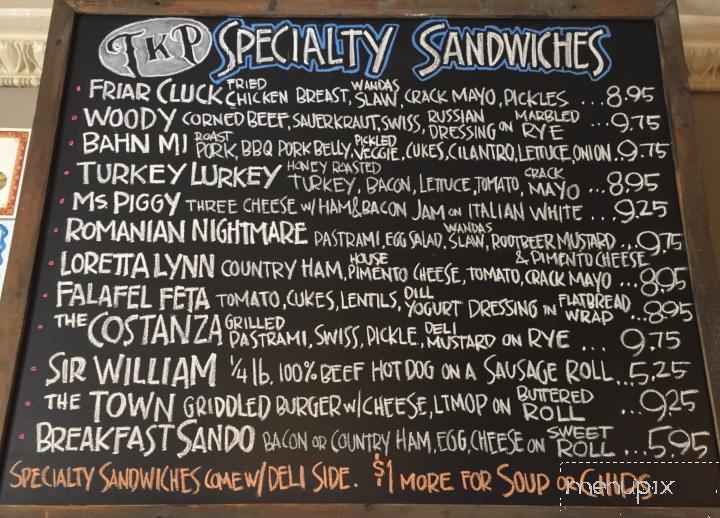 TKP SPECIALTY SANDWICHES
FRIAR CLUCK FRIED CHICKEN BREAST, WANDAS SLAW, CRACK MAYO, PICKLES ...8.95
WOODY CORNED BEEF, SAUERKRAUT, SWISS, RUSSIAN DRESSING ON MARBLED RYE ...9.75
BAHN MI ROAST PORK, BBQ PORK BELLY, PICKLED VEGGIE, CUKES, CILANTRO, LETTUCE, ONION..9.75
TURKEY LURKEY HONEY ROASTED TURKEY, BACON, LETTUCE, TOMATO, CRACK MAYO ...8.95
MS PIGGY THREE CHEESE W/ HAM & BACON JAM ON ITALIAN WHITE ...9.25
ROMANIAN NIGHTMARE PASTRAMI, EGG SALAD, WANDAS SLAW, ROOTBEER MUSTARD & PIMENTO CHEESE ...9.75
LORETTA LYNN COUNTRY HAM, HOUSE PIMENTO CHEESE, TOMATO, CRACK MAYO ...8.95
FALAFEL FETA TOMATO, CUKES, LENTILS, DILL YOGURT DRESSING IN FLATBREAD WRAP ...8.95
THE COSTANZA GRILLED PASTRAMI, SWISS, PICKLE, DELI MUSTARD ON RYE ... 9.75
SIR WILLIAM 1/4 lb. 100% BEEF HOT DOG ON A SAUSAGE ROLL...5.25
THE TOWN GRIDDLED BURGER W/CHEESE, LTMOP ON BUTTERED ROLL ...9.25
BREAKFAST SANDO BACON OR COUNTRY HAM, EGG, CHEESE ON SWEET ROLL ...5.95
SPECIALTY SANDWICHES COME W/ DELI SIDE. $1 MORE FOR SOUP OR CHIPS
menupix